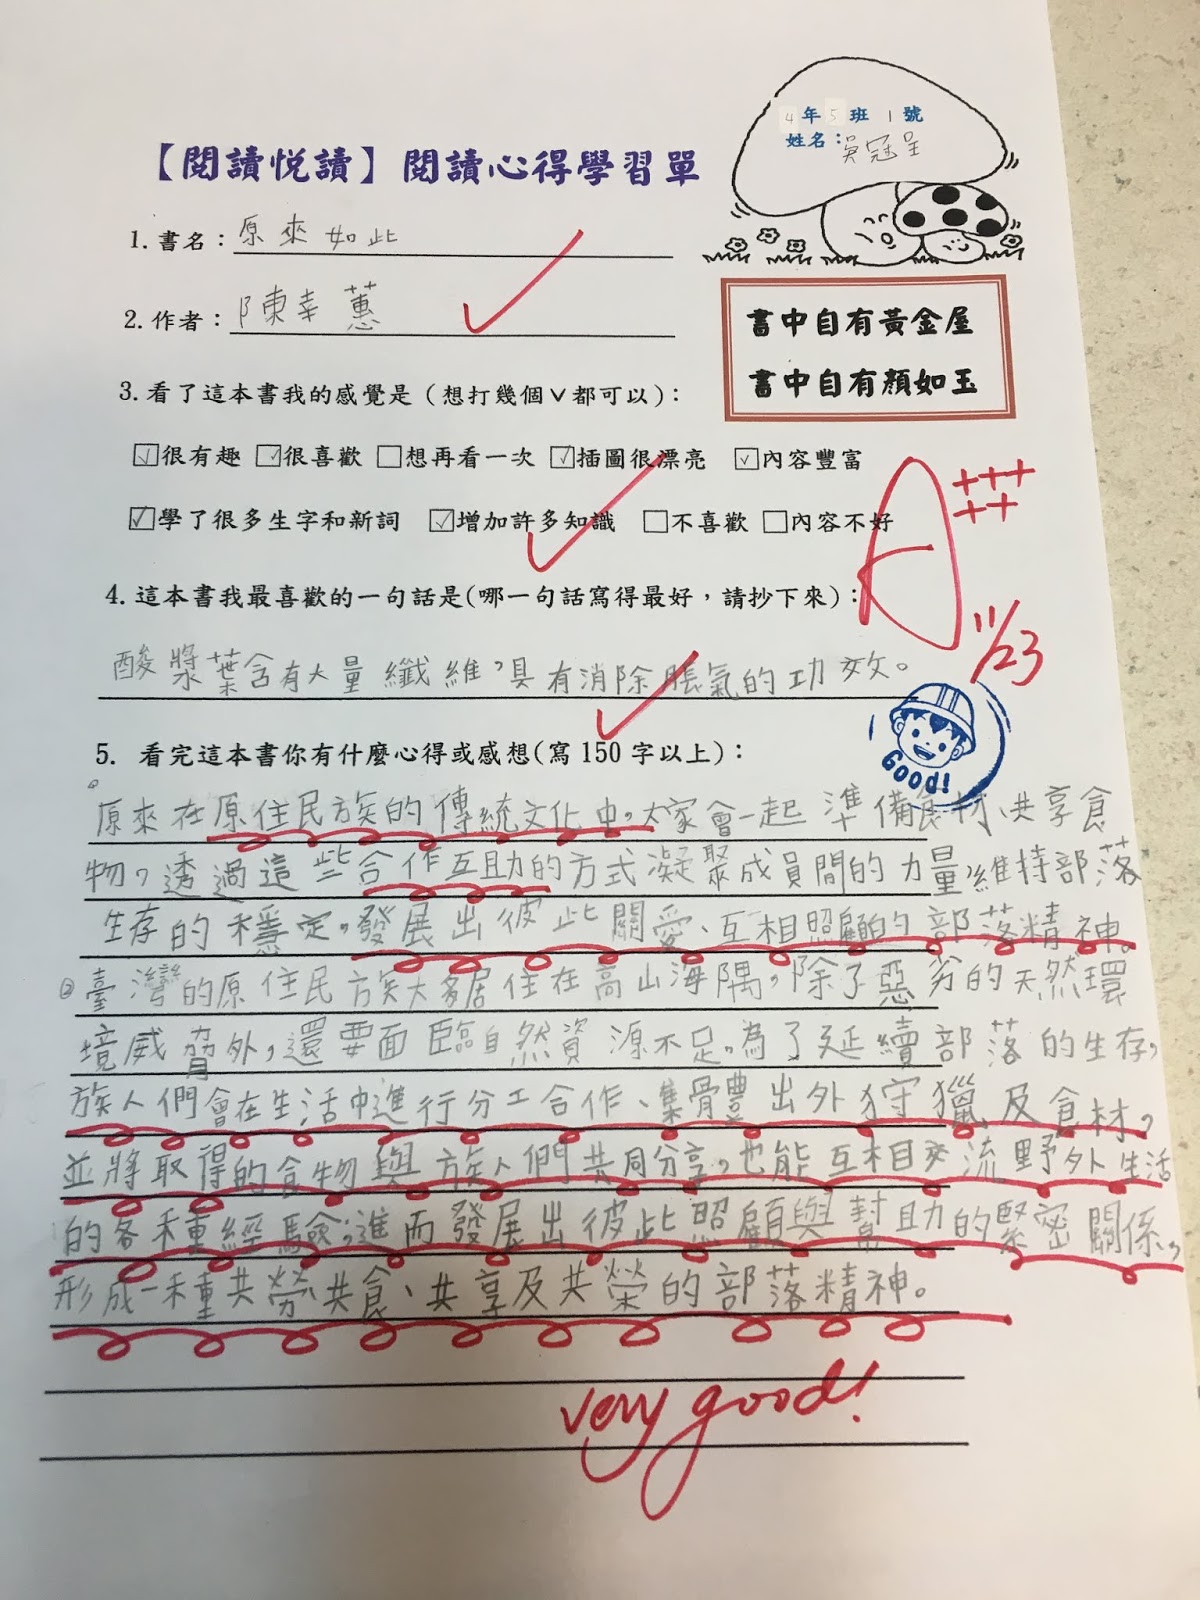 4年5班1號
姓名：吳冠呈
【閱讀悅讀】閱讀心得學習單
1. 書名：原來如此
2. 作者：陳幸蕙
書中自有黃金屋
書中自有顏如玉
3. 看了這本書我的感覺是（想打幾個∨都可以）：
☑很有趣 ☑很喜歡 □想再看一次 ☑插圖很漂亮 ☑內容豐富
☑學了很多生字和新詞 ☑增加許多知識 □不喜歡 □內容不好
A+++++
11/23
4. 這本書我最喜歡的一句話是(哪一句話寫得最好，請抄下來)：
酸漿葉含有大量纖維，具有消除脹氣的功效。
Good!
5. 看完這本書你有什麼心得或感想(寫150字以上)：
原來在原住民族的傳統文化中，大家會一起準備食材、共享食
物，透過這些合作互助的方式凝聚成員間的力量，維持部落
生存的穩定，發展出彼此關愛、互相照顧的部落精神。
臺灣的原住民族大多居住在高山海隅，除了惡劣的天然環
境威脅外，還要面臨自然資源不足。為了延續部落的生存，
族人們會在生活中進行分工合作、集體出外狩獵及食材，
並將取得的食物與族人們共同分享，也能互相交流野外生活
的各種經驗；進而發展出彼此照顧與幫助的緊密關係，
形成一種共勞、共食、共享及共榮的部落精神。
very good!